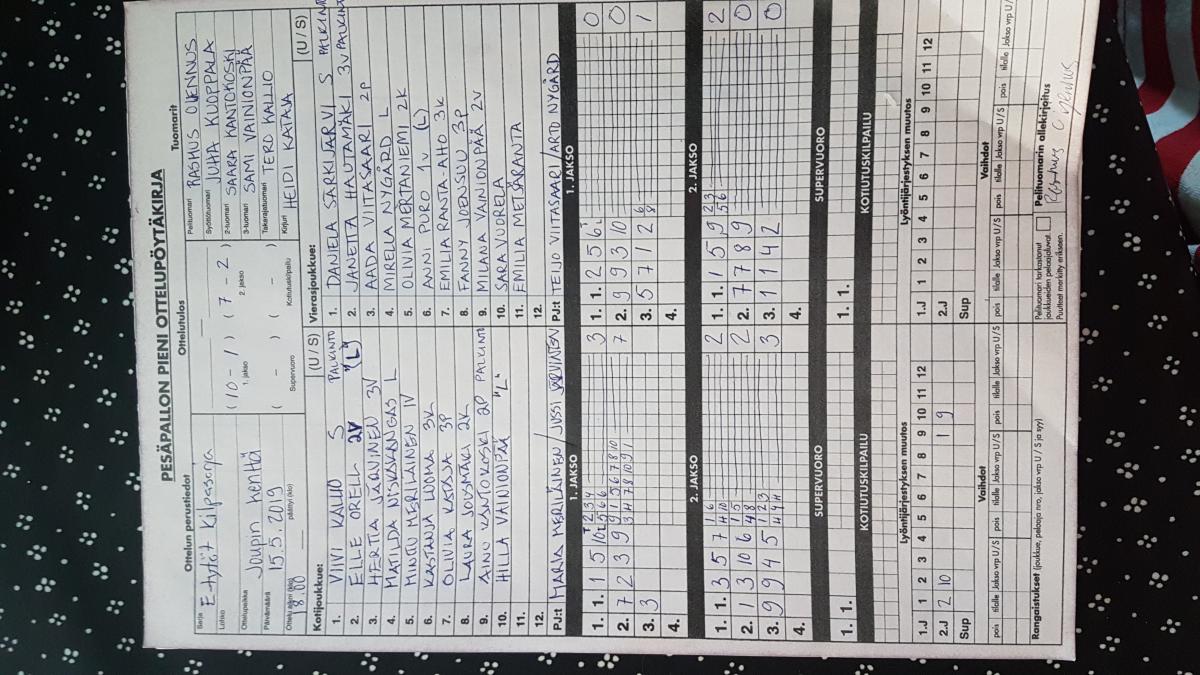 PESÄPALLON PIENI OTTELUPÖYTÄKIRJA
Ottelun perustiedot
Ottelutulos
Tuomarit
Sarja
E-tytöt Kilpasarja
Lohko
Ottelupaikka
Joupin kenttä
Päivämäärä
15.5.2019
Ottelu alkoi (klo)
18.00
päättyi (klo)
( 10 - 1 ) ( 7 - 2 )
1. jakso 2. jakso
( - ) ( - )
Supervuoro Kotiutuskilpailu
Pelituomari
RASMUS OVENNUS
Syöttötuomari
JUHA KUOPPALA
2-tuomari
SAARA KANTOKOSKI
3-tuomari
SAMI VAINIONPÄÄ
Takarajatuomari
TERO KALLIO
Kirjuri
HEIDI KATAJA
Kotijoukkue: (U / S)
1. VIIVI KALLIO S PALKINTO
2. ELLE ORELL 2V "(L")
3. HERTTA JÄRVINEN 3V
4. MATILDA NISKAKANGAS L
5. MINTU MERILÄINEN 1V
6. KASTANJA LUOMA 3K
7. OLIVIA KATAJA 3P
8. LAURA JOUSMÄKI 2K
9. AINO KANTOKOSKI 2P PALKINTO
10. HILLA VAINIONPÄÄ "L"
11.
12.
PJ:t MARIA MERILÄINEN / JUSSI JÄRVINEN
Vierasjoukkue: (U / S)
1. DANIELA SARKIJÄRVI S PALKINTO
2. JANETTA HAUTAMÄKI 3V PALKINTO
3. AADA VIITASAAR 2P
4. MIRELLA NYGÅRD L
5. OLIVIA MERTANIEMI 2K
6. ANNI PURO 1V (L)
7. EMILIA RANTA-AHO 3K
8. FANNY JOENSUU 3P
9. MILANA VAINIONPÄÄ 2V
10. SARA VUORELA
11. EMILIA METSÄRANTA
12.
PJ:t TEIJO VIITASAARI / ARTO NYGÅRD
1. JAKSO
1. 1. 1 5 10
3
2. 7 2 3 9
7
3. 3
4.
1. JAKSO
1. 1. 2 5 6
0
2. 9 9 3 10
0
3. 5 7 1 2
1
4.
2. JAKSO
1. 1. 3 5 7
2
2. 1 3 10 6
2
3. 9 9 4 5
3
4.
2. JAKSO
1. 1. 1 5 9
2
2. 7 7 8 9
0
3. 1 1 4 2
0
4.
SUPERVUORO
1. 1.
SUPERVUORO
1. 1.
KOTIUTUSKILPAILU
KOTIUTUSKILPAILU
Lyöntijärjestyksen muutos
1.J 1 2 3 4 5 6 7 8 9 10 11 12
2.J 2 10 1 9
Sup
Lyöntijärjestyksen muutos
1.J 1 2 3 4 5 6 7 8 9 10 11 12
2.J
Sup
Vaihdot
pois tilalle Jakso vrp U/S pois tilalle Jakso vrp U/S pois tilalle Jakso vrp U/S
Vaihdot
pois tilalle Jakso vrp U/S pois tilalle Jakso vrp U/S pois tilalle Jakso vrp U/S
Rangaistukset (joukkue, pelaaja nro, jakso vrp U / S ja syy)
Pelituomari tarkastanut
joukkueiden pelaajaluvat.
Puutteet merkitty erikseen.
Pelituomarin allekirjoitus